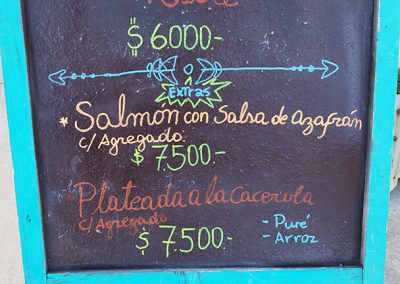 $ 6.000.-
Extras
* Salmón con Salsa de Azafrán
c/Agregado
$ 7.500.-
* Plateada a la Cacerola
c/Agregado
- Puré
- Arroz
$ 7.500.-